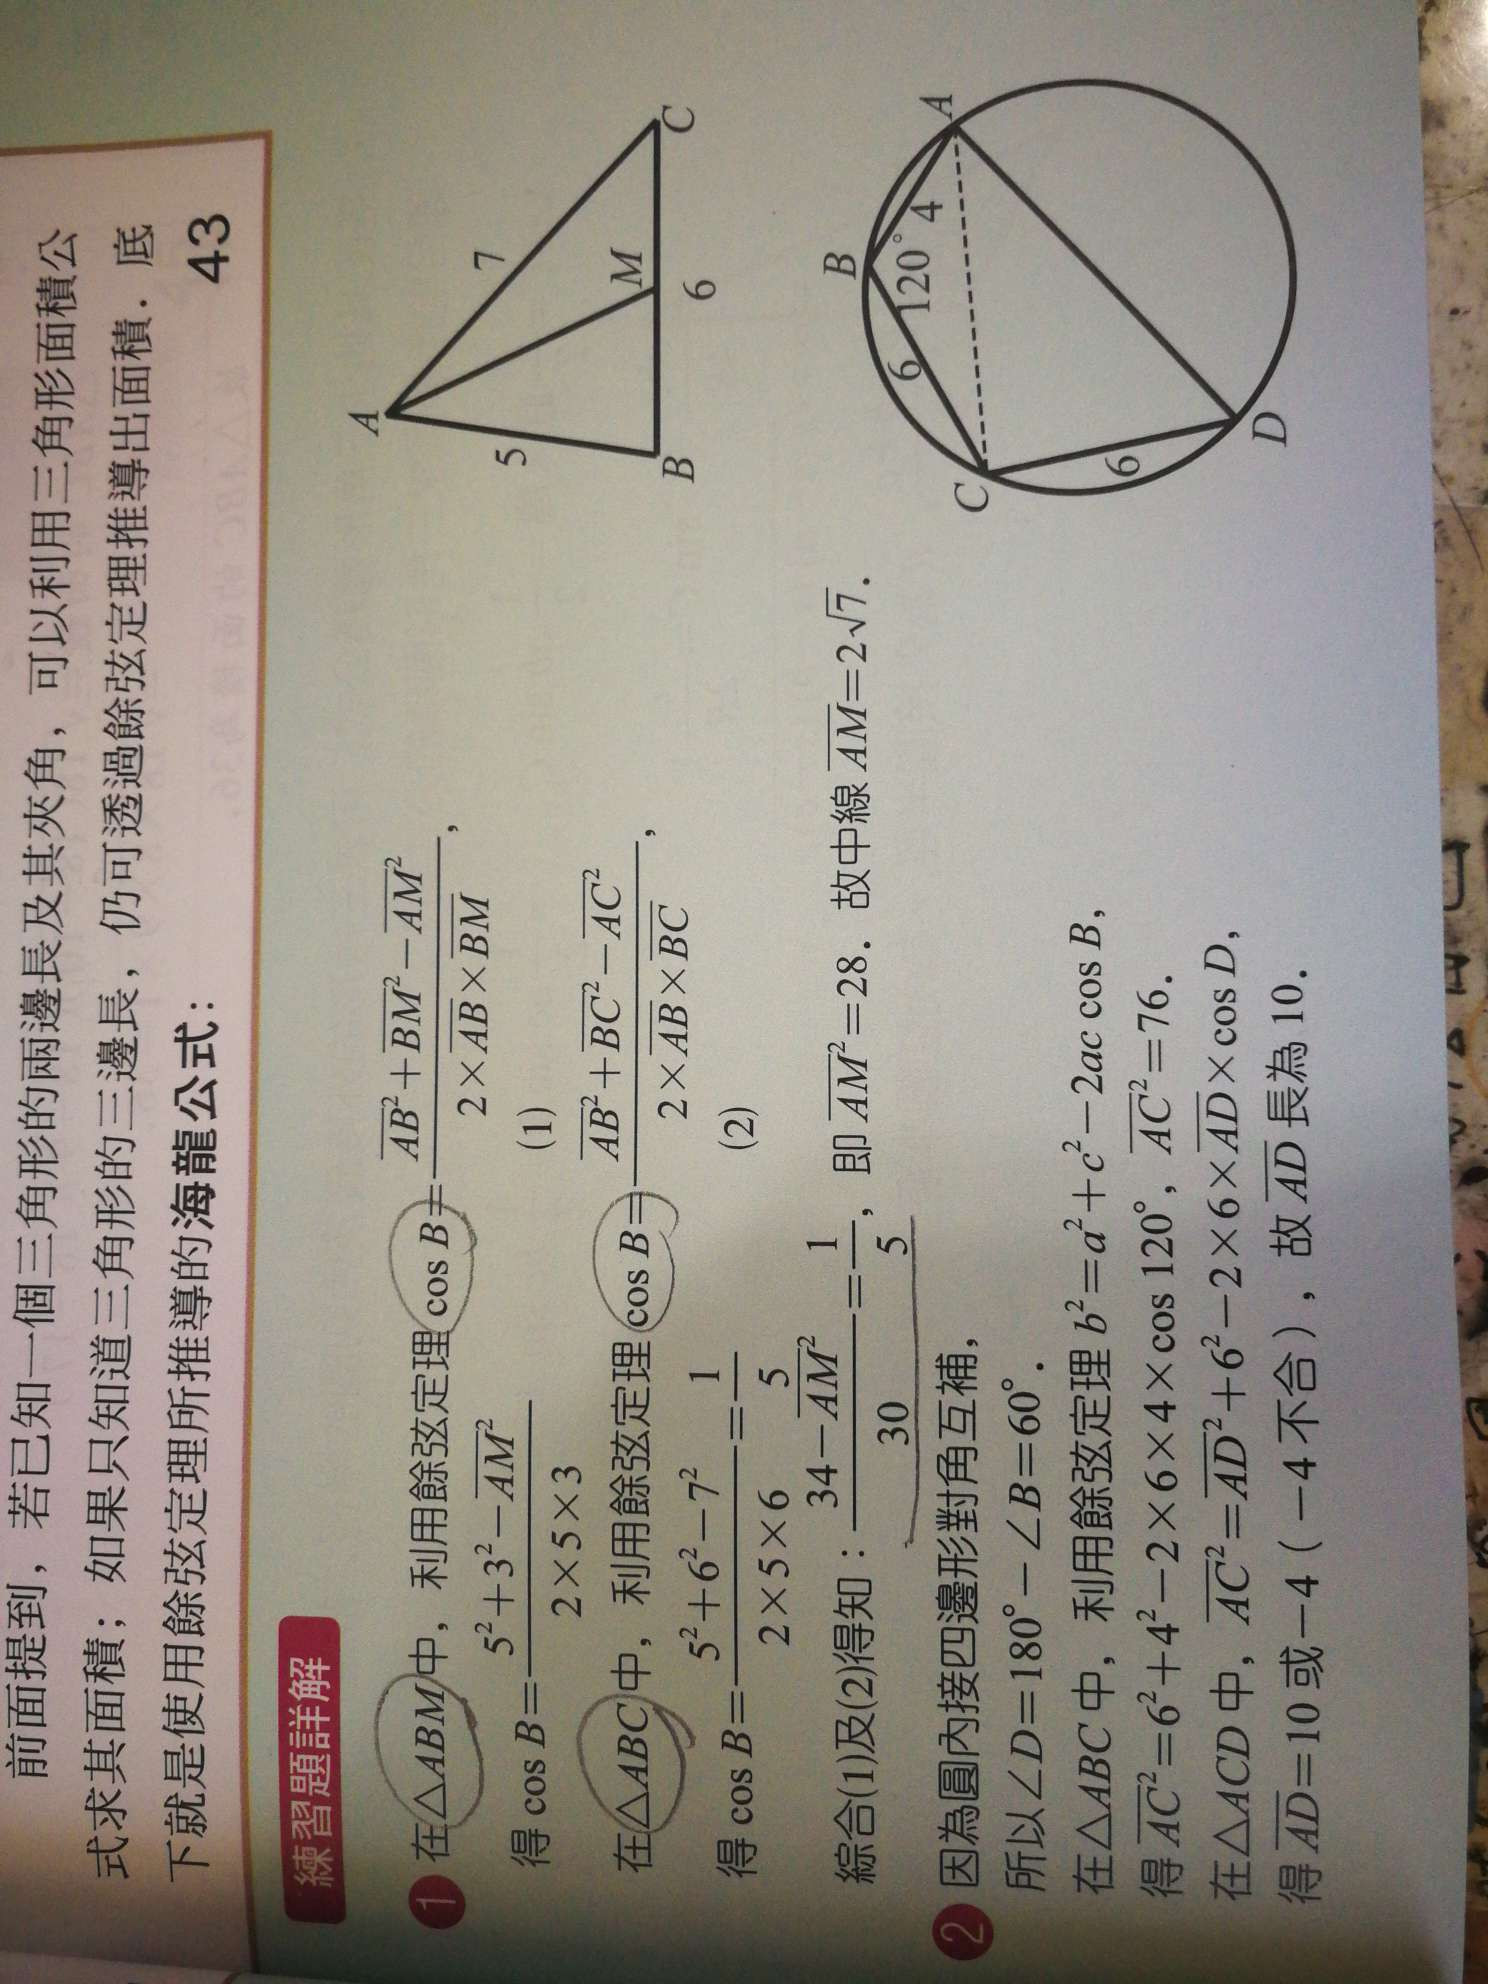 前面提到，若已知一個三角形的兩邊長及其夾角，可以利用三角形面積公
式求其面積；如果只知道三角形的三邊長，仍可透過餘弦定理推導出面積．底
下就是使用餘弦定理所推導的海龍公式：
43
練習題詳解
1 在△ABM中，利用餘弦定理 cos B＝(AB²＋BM²－AM²)/(2×AB×BM)，
得 cos B＝(5²＋3²－AM²)/(2×5×3) (1)
在△ABC中，利用餘弦定理 cos B＝(AB²＋BC²－AC²)/(2×AB×BC)，
得 cos B＝(5²＋6²－7²)/(2×5×6)＝1/5 (2)
綜合(1)及(2)得知：(34－AM²)/30＝1/5，即 AM²＝28．故中線 AM＝2√7．
A
5
7
B
M
C
6
2 因為圓內接四邊形對角互補，
所以∠D＝180°－∠B＝60°．
在△ABC中，利用餘弦定理 b²＝a²＋c²－2ac cos B，
得 AC²＝6²＋4²－2×6×4×cos 120°，AC²＝76．
在△ACD中，AC²＝AD²＋6²－2×6×AD×cos D，
得 AD＝10 或－4（－4 不合），故 AD 長為 10．
B
6
120°
4
A
C
6
D